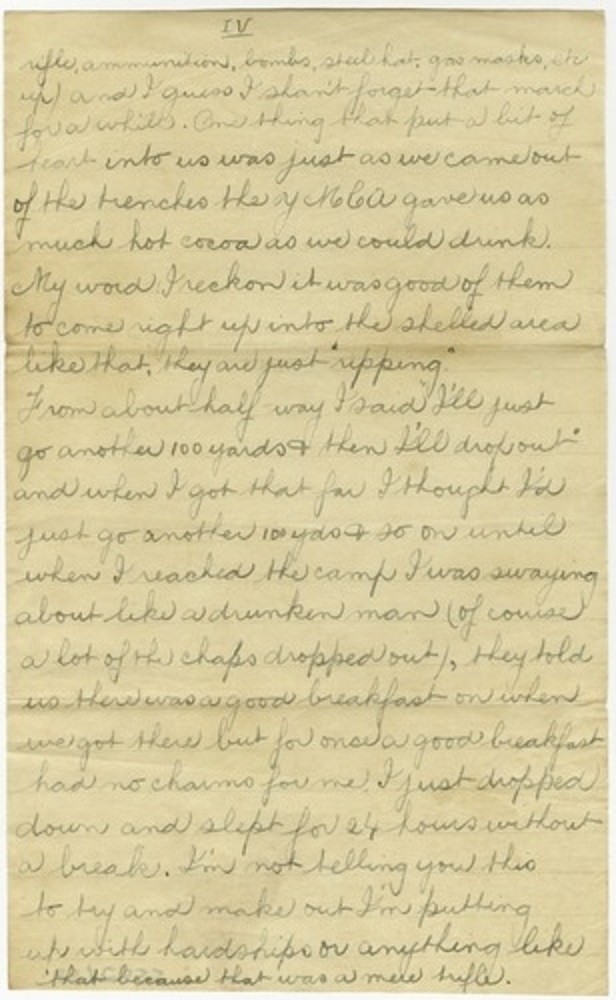 IV
rifle, ammunition, bombs, steel hat, gas masks, etc
up) and I guess I shan't forget that march
for a while. One thing that put a bit of
heart into us was just as we came out
of the trenches the YMCA gave us as
much hot cocoa as we could drink.
My word I reckon it was good of them
to come right up into the shelled area
like that, they are just "ripping".
From about half way I said "I'll just
go another 100 yards & then I'll drop out"
and when I got that far I thought I'd
just go another 100 yds & so on until
when I reached the camp I was swaying
about like a drunken man (of course
a lot of the chaps dropped out), they told
us there was a good breakfast on when
we got there but for once a good breakfast
had no charms for me. I just dropped
down and slept for 24 hours without
a break. I'm not telling you this
to try and make out I'm putting
up with hardships or anything like
that because that was a mere trifle.